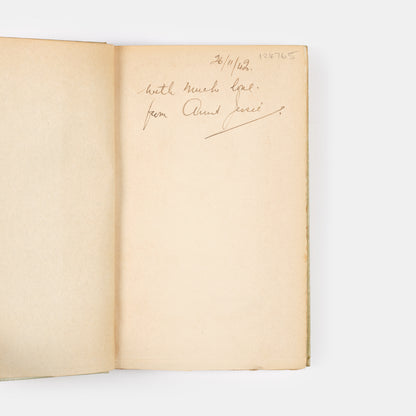 26/11/42. 124765
with much love.
from Aunt Jessie.